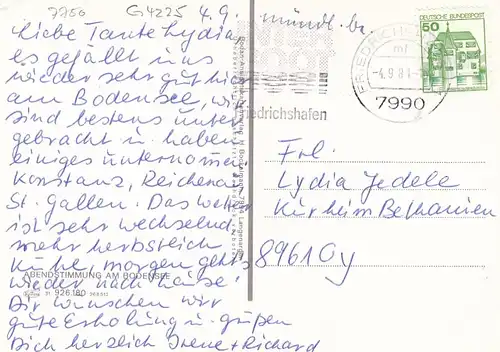 7766 G4225 4.9. mündl. be
Liebe Tante Lydia,
es gefällt uns
wieder sehr gut hier
am Bodensee, wir
sind bestens unter
gebracht u. haben
einiges unternommen
Konstanz, Reichenau
St. Gallen. Das Wetter
ist sehr wechselnd
mehr herbstlich
kühl, morgen geht's
wieder nach Hause.
Dir wünschen wir
gute Erholung u. grüßen
Dich herzlich Irene + Richard
ABENDSTIMMUNG AM BODENSEE
926.180
DEUTSCHE BUNDESPOST
50
-4.9.81
7990
Friedrichshafen
Frl.
Lydia Jedele
Kurheim Bethanien
8961 Oy